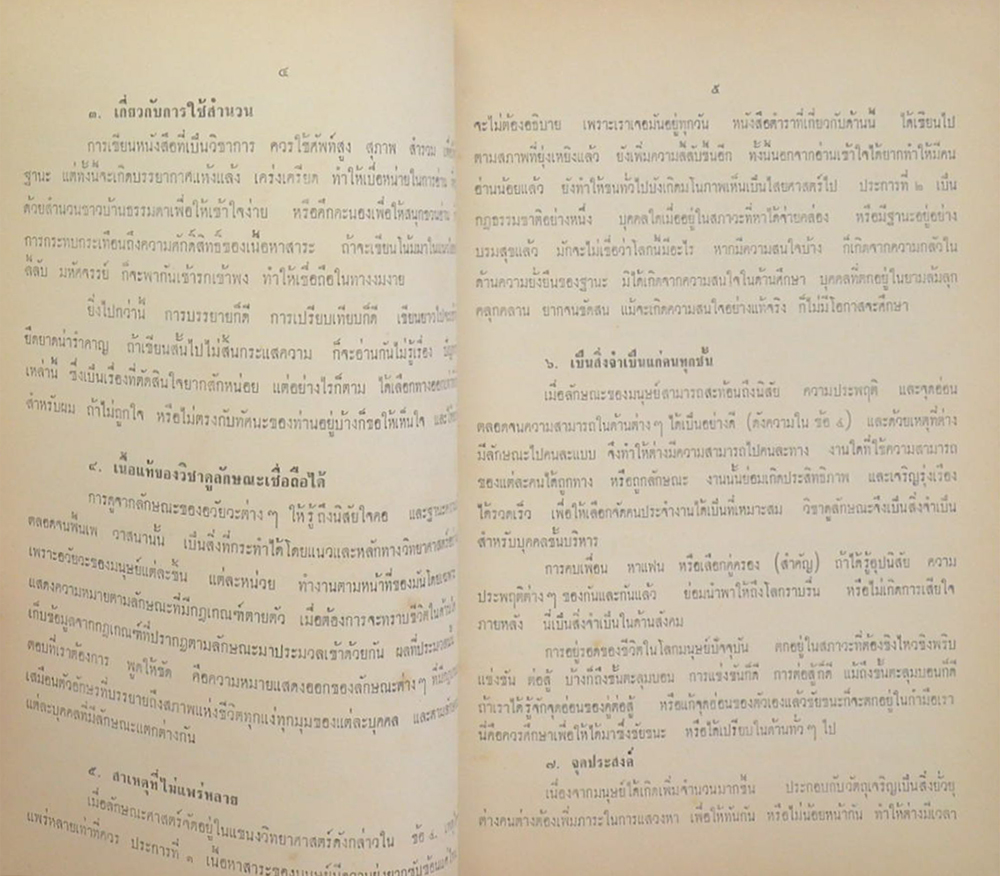 ๔
๓. เกี่ยวกับการใช้สำนวน
การเขียนหนังสือที่เป็นวิชาการ ควรใช้ศัพท์สูง สุภาพ สำรวม
ฐานะ แต่ทั้งนี้จะเกิดบรรยากาศแห้งแล้ง เคร่งเครียด ทำให้เบื่อหน่ายในการอ่าน
ด้วยสำนวนชาวบ้านธรรมดาเพื่อให้เข้าใจง่าย หรือคึกคะนองเพื่อให้สนุกชวนอ่าน
การกระทบกระเทือนถึงความศักดิ์สิทธิ์ของเนื้อหาสาระ ถ้าจะเขียนโน้มมาในแนว
ลี้ลับ มหัศจรรย์ ก็จะพากันเข้ารกเข้าพง ทำให้เชื่อถือในทางงมงาย
ยิ่งไปกว่านี้ การบรรยายก็ดี การเปรียบเทียบก็ดี เขียนยาวไป
ยืดยาดน่ารำคาญ ถ้าเขียนสั้นไปไม่สิ้นกระแสความ ก็จะอ่านกันไม่รู้เรื่อง
เหล่านี้ ซึ่งเป็นเรื่องที่ตัดสินใจยากสักหน่อย แต่อย่างไรก็ตาม ได้เลือกทางออก
สำหรับผม ถ้าไม่ถูกใจ หรือไม่ตรงกับทัศนะของท่านอยู่บ้างก็ขอให้เห็นใจ และ
๔. เนื้อแท้ของวิชาดูลักษณะเชื่อถือได้
การดูจากลักษณะของอวัยวะต่างๆ ให้รู้ถึงนิสัยใจคอ และฐานะ
ตลอดจนพื้นเพ วาสนานั้น เป็นสิ่งที่กระทำได้โดยแนวและหลักทางวิทยาศาสตร์
เพราะอวัยวะของมนุษย์แต่ละชิ้น แต่ละหน่วย ทำงานตามหน้าที่ของมันโดย
แสดงความหมายตามลักษณะที่มีกฎเกณฑ์ตายตัว เมื่อต้องการจะทราบชีวิตในด้าน
เก็บข้อมูลจากกฎเกณฑ์ที่ปรากฏตามลักษณะมาประมวลเข้าด้วยกัน ผลที่ประมวล
ตอบที่เราต้องการ พูดให้ชัด คือความหมายแสดงออกของลักษณะต่างๆ
เสมือนตัวอักษรที่บรรยายถึงสภาพแห่งชีวิตทุกแง่ทุกมุมของแต่ละบุคคล และ
แต่ละบุคคลที่มีลักษณะแตกต่างกัน
๕. สาเหตุที่ไม่แพร่หลาย
เมื่อลักษณะศาสตร์จัดอยู่ในแขนงวิทยาศาสตร์ดังกล่าวใน ข้อ ๔
แพร่หลายเท่าที่ควร ประการที่ ๑ เนื้อหาสาระของมนุษย์มีความยุ่งยากซับซ้อน
๕
จะไม่ต้องอธิบาย เพราะเราเจอมันอยู่ทุกวัน หนังสือตำราที่เกี่ยวกับด้านนี้ ได้เขียนไป
ตามสภาพที่ยุ่งเหยิงแล้ว ยังเพิ่มความลี้ลับขึ้นอีก ทั้งนี้นอกจากอ่านเข้าใจได้ยากทำให้มีคน
อ่านน้อยแล้ว ยังทำให้ชนทั่วไปบังเกิดมโนภาพเห็นเป็นไสยศาสตร์ไป ประการที่ ๒ เป็น
กฎธรรมชาติอย่างหนึ่ง บุคคลใดเมื่ออยู่ในสภาวะที่หาได้จ่ายคล่อง หรือมีฐานะอยู่อย่าง
บรมสุขแล้ว มักจะไม่เชื่อว่าโลกนี้มีอะไร หากมีความสนใจบ้าง ก็เกิดจากความกลัวใน
ด้านความยั่งยืนของฐานะ มิได้เกิดจากความสนใจในด้านศึกษา บุคคลที่ตกอยู่ในยามล้มลุก
คลุกคลาน ยากจนขัดสน แม้จะเกิดความสนใจอย่างแท้จริง ก็ไม่มีโอกาสจะศึกษา
๖. เป็นสิ่งจำเป็นแก่คนทุกชั้น
เมื่อลักษณะของมนุษย์สามารถสะท้อนถึงนิสัย ความประพฤติ และจุดอ่อน
ตลอดจนความสามารถในด้านต่างๆ ได้เป็นอย่างดี (ดังความใน ข้อ ๔) และด้วยเหตุที่ต่าง
มีลักษณะไปคนละแบบ จึงทำให้ต่างมีความสามารถไปคนละทาง งานใดที่ใช้ความสามารถ
ของแต่ละคนได้ถูกทาง หรือถูกลักษณะ งานนั้นย่อมเกิดประสิทธิภาพ และเจริญรุ่งเรือง
ได้รวดเร็ว เพื่อให้เลือกจัดคนประจำงานได้เป็นที่เหมาะสม วิชาดูลักษณะจึงเป็นสิ่งจำเป็น
สำหรับบุคคลชั้นบริหาร
การคบเพื่อน หาแฟน หรือเลือกคู่ครอง (สำคัญ) ถ้าได้รู้อุปนิสัย ความ
ประพฤติต่างๆ ของกันและกันแล้ว ย่อมนำพาให้ถึงโลกราบรื่น หรือไม่เกิดการเสียใจ
ภายหลัง นี่เป็นสิ่งจำเป็นในด้านสังคม
การอยู่รอดของชีวิตในโลกมนุษย์ปัจจุบัน ตกอยู่ในสภาวะที่ต้องชิงไหวชิงพริบ
แข่งขัน ต่อสู้ บ้างก็ถึงขั้นตะลุมบอน การแข่งขันก็ดี การต่อสู้ก็ดี แม้ถึงขั้นตะลุมบอนก็ดี
ถ้าเราได้รู้จักจุดอ่อนของคู่ต่อสู้ หรือแก้จุดอ่อนของตัวเองแล้วชัยชนะก็จะตกอยู่ในกำมือเรา
นี่คือควรศึกษาเพื่อให้ได้มาซึ่งชัยชนะ หรือได้เปรียบในด้านทั่วๆ ไป
๗. จุดประสงค์
เนื่องจากมนุษย์ได้เกิดเพิ่มจำนวนมากขึ้น ประกอบกับวัตถุเจริญเป็นสิ่งยั่วยุ
ต่างคนต่างต้องเพิ่มภาระในการแสวงหา เพื่อให้ทันกัน หรือไม่น้อยหน้ากัน ทำให้ต่างมีเวลา